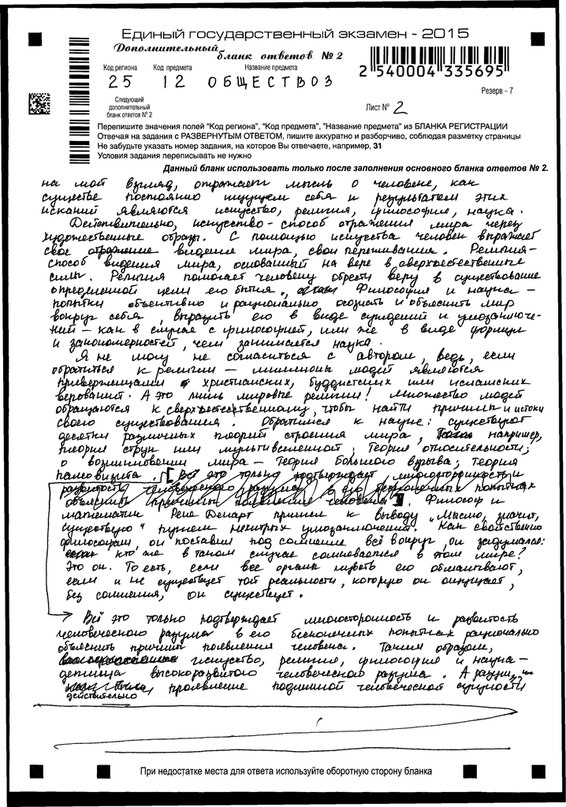 Единый государственный экзамен - 2015
Дополнительный
бланк ответов № 2
Код региона Код предмета Название предмета
25 12 ОБЩЕСТВОЗ
2 540004 335695
Резерв - 7
Следующий
дополнительный
бланк ответов № 2
Лист № 2
Перепишите значения полей "Код региона", "Код предмета", "Название предмета" из БЛАНКА РЕГИСТРАЦИИ
Отвечая на задания с РАЗВЕРНУТЫМ ОТВЕТОМ, пишите аккуратно и разборчиво, соблюдая разметку страницы
Не забудьте указать номер задания, на которое Вы отвечаете, например, 31
Условия задания переписывать не нужно
Данный бланк использовать только после заполнения основного бланка ответов № 2.
на мой взгляд, отражает мысль о человеке, как
существе постоянно ищущем себя и результатом этих
исканий являются искусство, религия, философия, наука.
Действительно, искусство - способ отражения мира через
художественные образы. С помощью искусства человек выражает
свое видение мира, свои переживания. Религия -
способ видения мира, основанный на вере в сверхъестественные
силы. Религия помогает человеку обрести веру в существование
определенной цели его бытия. Философия и наука -
попытки объективно и рационально осознать и объяснить мир
вокруг себя, выразить его в виде суждений и умозаключе-
ний - как в случае с философией, или же в виде формул
и закономерностей, чем занимается наука.
Я не могу не согласиться с автором, ведь, если
обратиться к религии - миллионы людей являются
приверженцами христианских, буддистских или исламских
верований. А это лишь мировые религии! Множество людей
обращаются к сверхъестественному, чтобы найти причины и истоки
своего существования. Обратимся к науке: существуют
десятки различных теорий строения мира, например,
теория струн или мультивселенной; теория относительности;
о возникновении мира - теория большого взрыва; теория
Всё это только подтверждает многосторонность и
развитость человеческого разума в его бесконечных попытках
объяснить причины появления человека. Философ и
математик Рене Декарт пришел к выводу "Мыслю, значит,
существую" путем нехитрых умозаключений. Как свойственно
философам, он поставил под сомнение всё вокруг, он задумался:
кто же в таком случае сомневается в этом мире?
Это он. То есть, если все органы чувств его обманывают,
если и не существует той реальности, которую он ощущает,
без сомнения, он существует.
Всё это только подтверждает многосторонность и развитость
человеческого разума в его бесконечных попытках рационально
объяснить причины появления человека. Таким образом,
искусство, религия, философия и наука -
детища высокоразвитого человеческого разума. А разум,
действительно проявление подлинной человеческой сущности
При недостатке места для ответа используйте оборотную сторону бланка